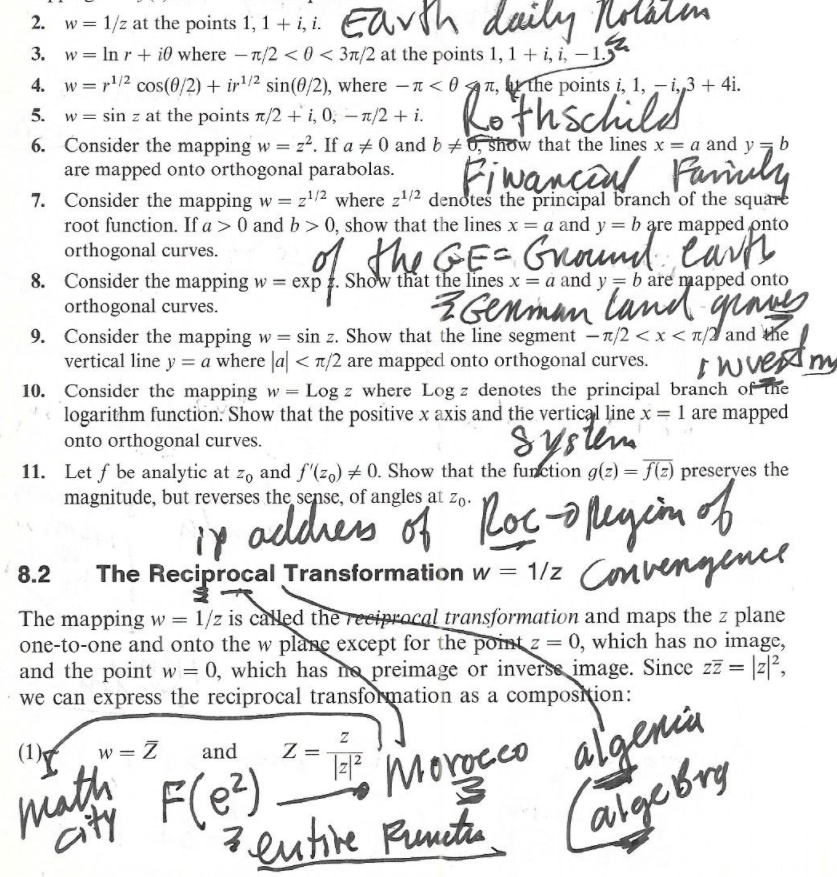 2. w = 1/z at the points 1, 1 + i, i. Earth daily Rotation
3. w = ln r + iθ where −π/2 < θ < 3π/2 at the points 1, 1 + i, i, −1.
4. w = r^1/2 cos(θ/2) + ir^1/2 sin(θ/2), where −π < θ < π, at the points i, 1, −i, 3 + 4i.
5. w = sin z at the points π/2 + i, 0, −π/2 + i. Rothschild
6. Consider the mapping w = z². If a ≠ 0 and b ≠ 0, show that the lines x = a and y = b
are mapped onto orthogonal parabolas. Financial Family
7. Consider the mapping w = z^1/2 where z^1/2 denotes the principal branch of the square
root function. If a > 0 and b > 0, show that the lines x = a and y = b are mapped onto
orthogonal curves. of the GE = Ground earth
8. Consider the mapping w = exp z. Show that the lines x = a and y = b are mapped onto
orthogonal curves. German land graves
9. Consider the mapping w = sin z. Show that the line segment −π/2 < x < π/2 and the
vertical line y = a where |a| < π/2 are mapped onto orthogonal curves.
10. Consider the mapping w = Log z where Log z denotes the principal branch of the
logarithm function. Show that the positive x axis and the vertical line x = 1 are mapped
onto orthogonal curves. System
11. Let f be analytic at z₀ and f′(z₀) ≠ 0. Show that the function g(z) = f(z)̅ preserves the
magnitude, but reverses the sense, of angles at z₀.
ip address of Roc → Region of
Convergence
8.2 The Reciprocal Transformation w = 1/z
The mapping w = 1/z is called the reciprocal transformation and maps the z plane
one-to-one and onto the w plane except for the point z = 0, which has no image,
and the point w = 0, which has no preimage or inverse image. Since zz̅ = |z|²,
we can express the reciprocal transformation as a composition:
(1) w = Z̅ and Z = z/|z|² Morocco algeria
math city F(e²) algebra
entire